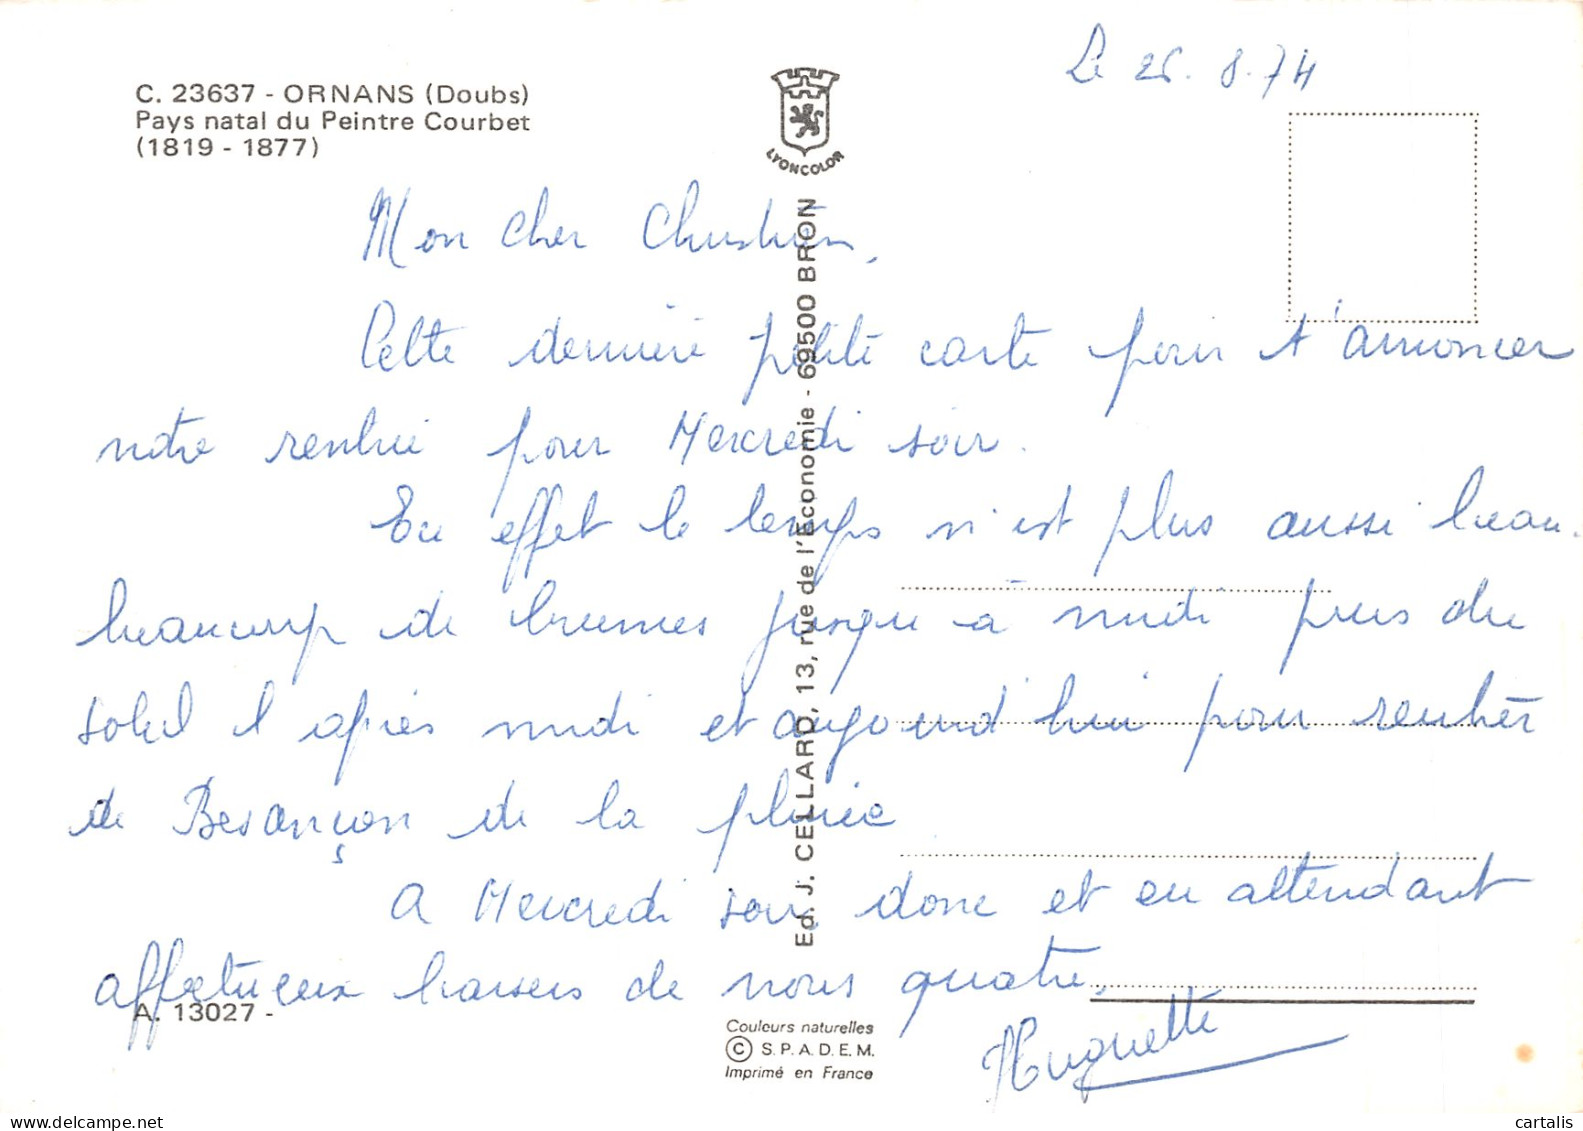 C. 23637 - ORNANS (Doubs)
Pays natal du Peintre Courbet
(1819 - 1877)
LYONCOLOR
Le 26. 8. 74
Mon cher Christian,
Cette dernière petite carte pour t'annoncer
notre rentrée pour Mercredi soir.
En effet le temps n'est plus aussi beau.
beaucoup de brumes jusque à midi puis du
soleil l'après midi et aujourd'hui pour rentrer
de Besançon de la pluie
A Mercredi soir donc et en attendant
affectueux baisers de nous quatre.
Huguette
Ed. J. CELLARD, 13, rue de l'Economie - 69500 BRON
A. 13027 -
Couleurs naturelles
© S.P.A.D.E.M.
Imprimé en France
www.delcampe.net
cartalis